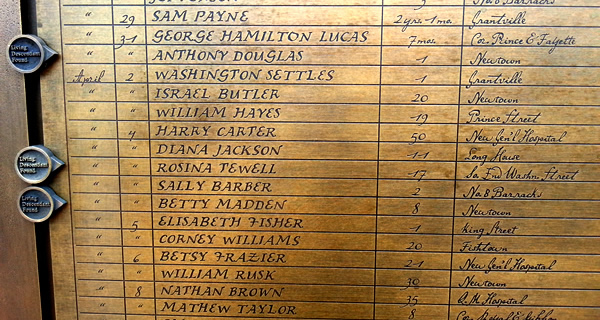 " 29 SAM PAYNE 2 yrs. 1 mo. Grantville
" 31 GEORGE HAMILTON LUCAS 7 mos. Cor. Prince & Fayette
Living
Descendant
Found
" " ANTHONY DOUGLAS 1 Newtown
April 2 WASHINGTON SETTLES 1 Grantville
" " ISRAEL BUTLER 20 Newtown
" " WILLIAM HAYES 19 Prince Street
" 4 HARRY CARTER 50 New Gen'l Hospital
" " DIANA JACKSON 11 Long House
Living
Descendant
Found
" " ROSINA TEWELL 17 So. End Washn. Street
" " SALLY BARBER 2 No. 8 Barracks
Living
Descendant
Found
" " BETTY MADDEN 8 Newtown
" 5 ELISABETH FISHER 1 King Street
" " CORNEY WILLIAMS 20 Fishtown
" 6 BETSY FRAZIER 21 New Gen'l Hospital
" " WILLIAM RUSK Newtown
" 8 NATHAN BROWN 35 Q.M. Hospital
" " MATHEW TAYLOR 8 Cor.